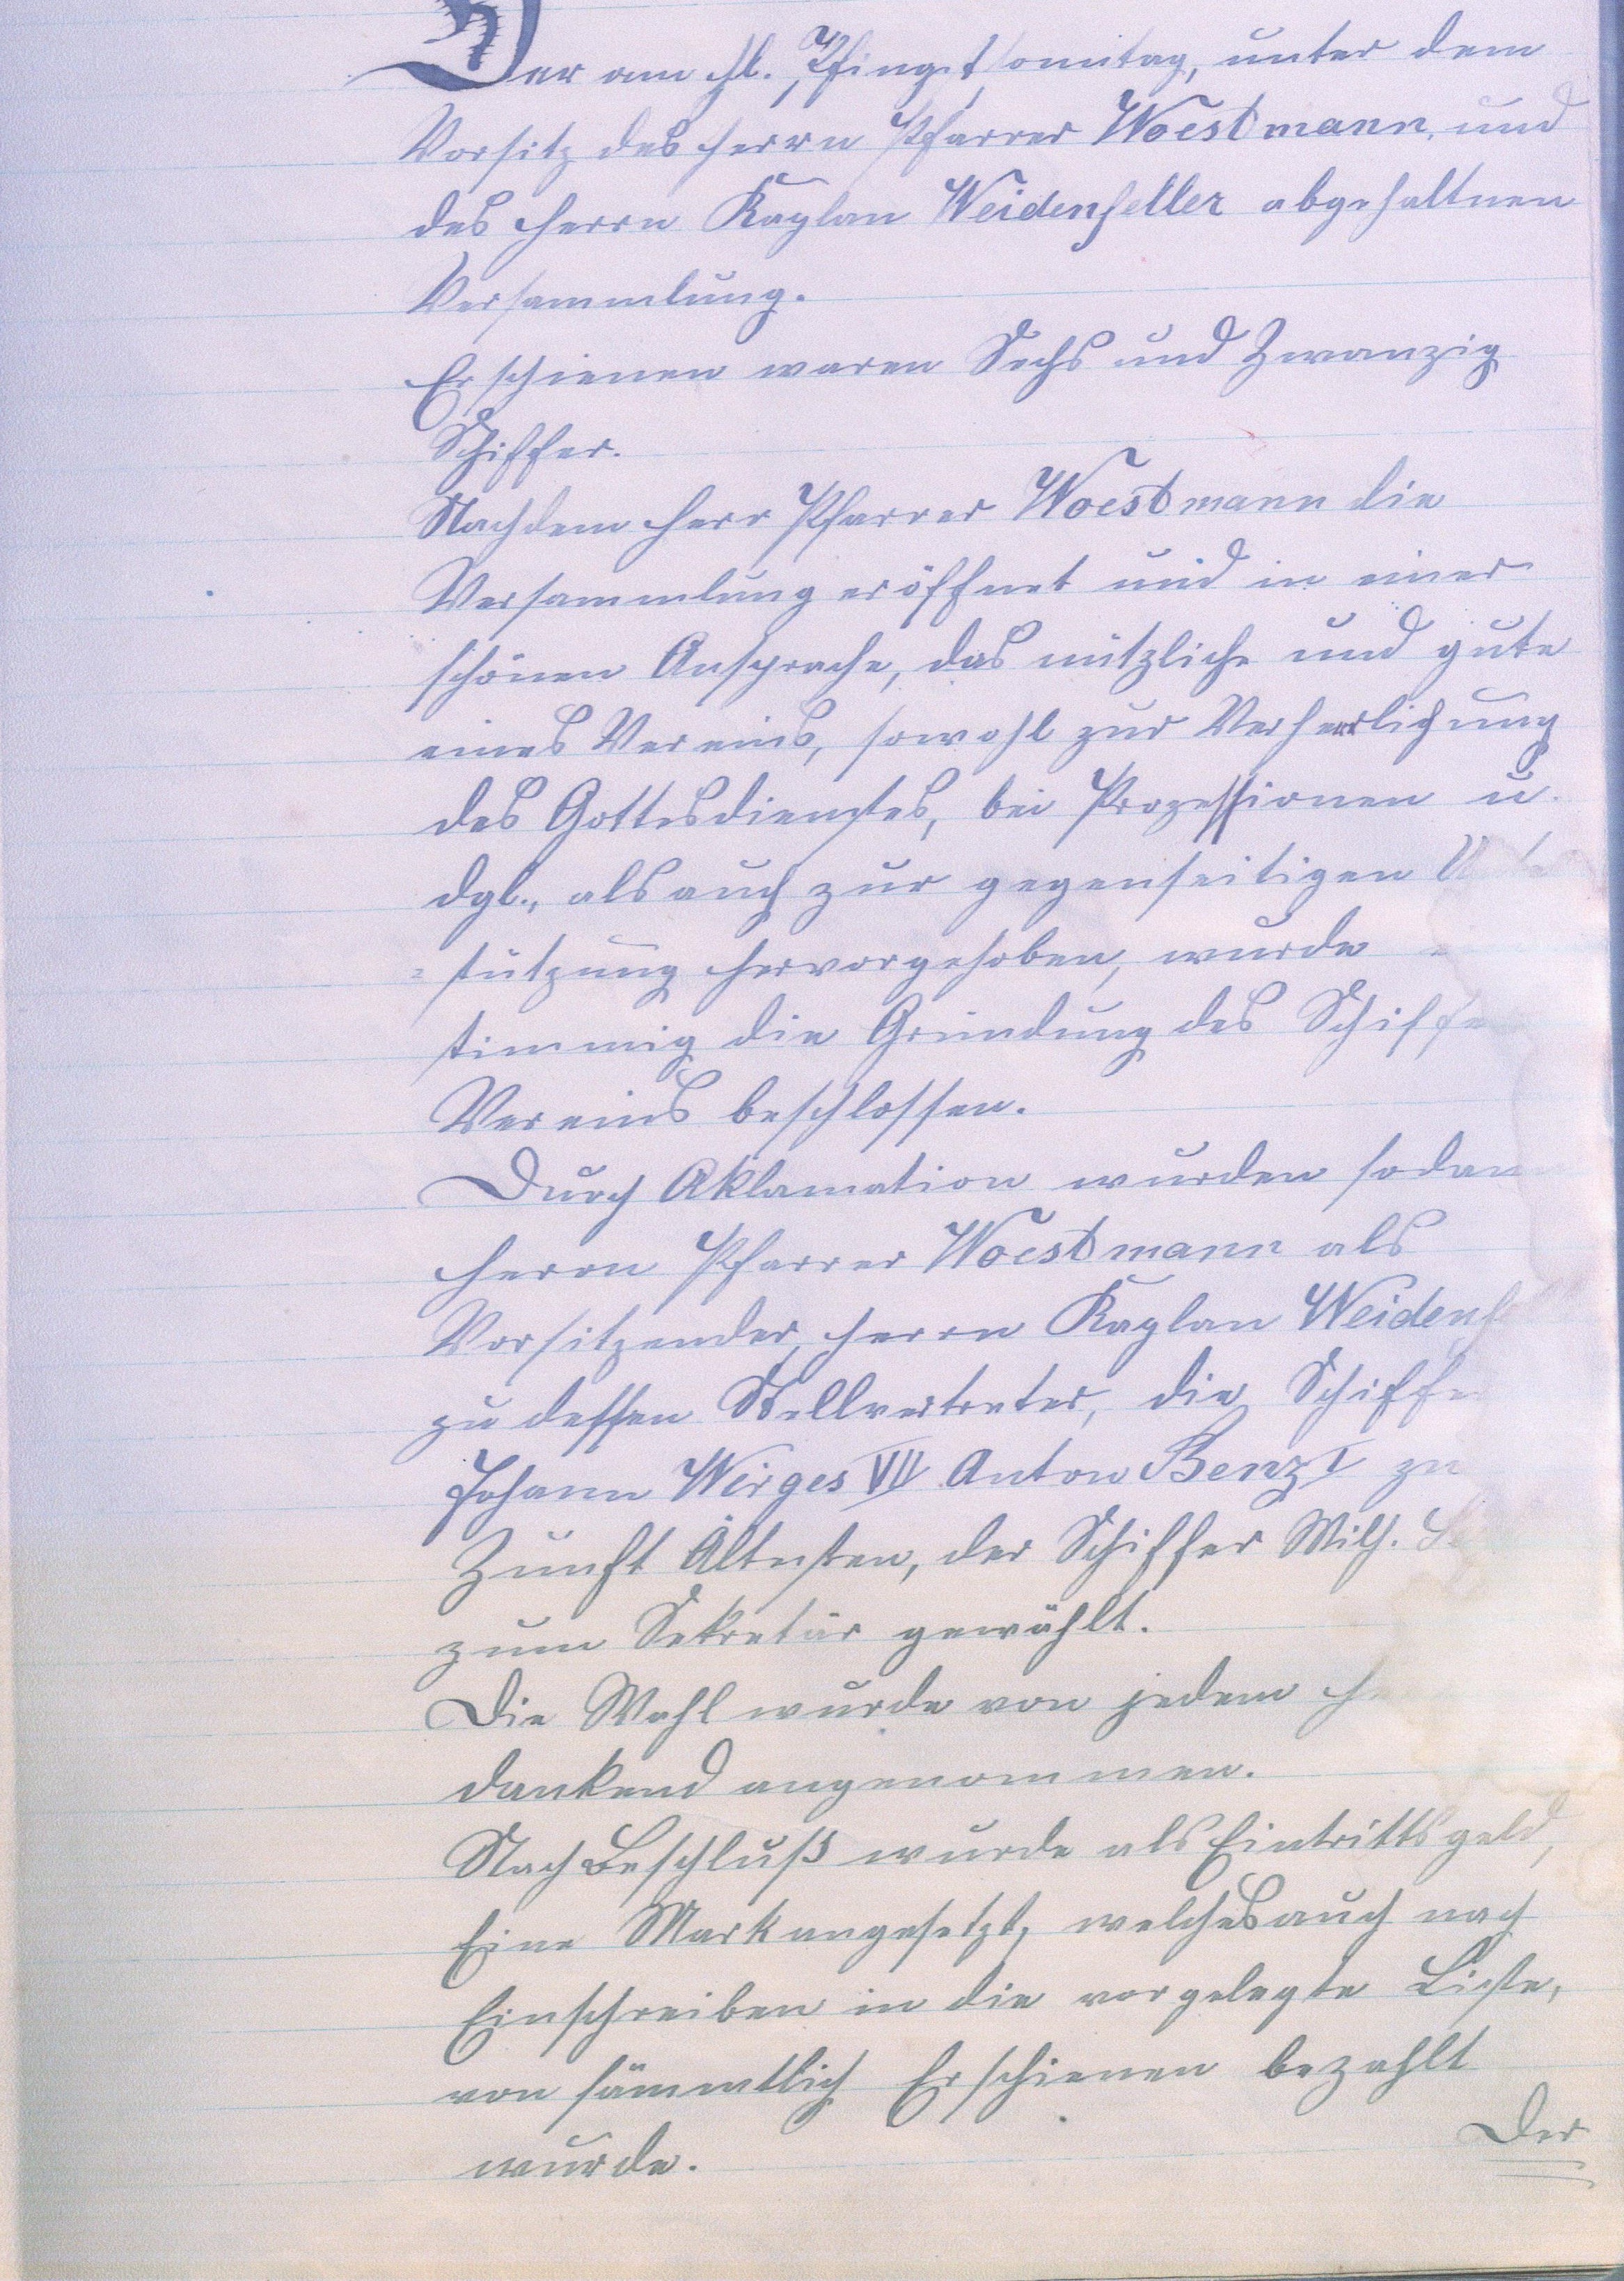 Der am hl. Pfingstsonntag, unter dem
Vorsitz des Herrn Pfarrer Woestmann und
des Herrn Kaplan Weidenfeller abgehaltnen
Versammlung.
Erschienen waren Sechs und Zwanzig
Schiffer.
Nachdem Herr Pfarrer Woestmann die
Versammlung eröffnet und in einer
schönen Ansprache, das nützliche und gute
eines Vereins, sowohl zur Verherrlichung
des Gottesdienstes, bei Prozessionen u.
dgl., als auch zur gegenseitigen
stützung hervorgehoben, wurde
stimmig die Gründung des Schiffe
Vereins beschlossen.
Durch Aklamation wurden sodan
Herrn Pfarrer Woestmann als
Vorsitzender, Herrn Kaplan Weidenf
zu dessen Stellvertreter, die Schiffe
Johann Wirges VII Anton Benz I zu
Zunft Ältesten, der Schiffer Wilh.
zum Sekretär gewählt.
Die Wahl wurde von jedem
dankend angenommen.
Nach Beschluß wurde als Eintrittsgeld,
Eine Mark angesetzt, welches auch nach
Einschreiben in die vorgelegte Liste,
von sämmtlich Erschienen bezahlt
wurde.
Der